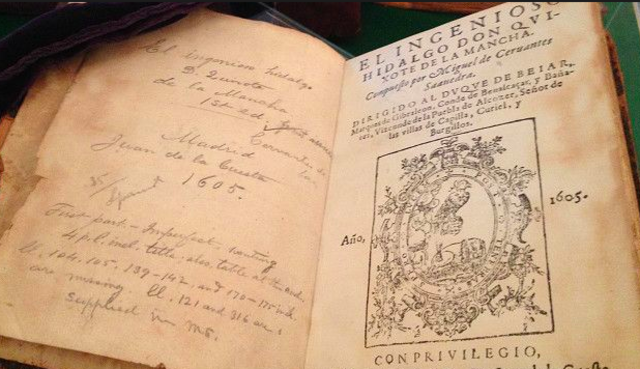 El ingenioso hidalgo
D. Quixote
de la Mancha
1st ed.
Cervantes
Madrid
Juan de la Cuesta
1605.
First part - Imperfect - wanting
4 p.l. incl. title; also table at the end
ll. 104, 105, 139-142, and 170-175
are missing. ll. 121 and 316 are
supplied in ms.
EL INGENIOSO
HIDALGO DON QVI-
XOTE DE LA MANCHA.
Compuesto por Miguel de Ceruantes
Saauedra.
DIRIGIDO AL DVQVE DE BEIAR,
Marques de Gibraleon, Conde de Benalcaçar, y Baña-
res, Vizconde de la Puebla de Alcozer, Señor de
las villas de Capilla, Curiel, y
Burgillos.
Año, 1605.
CONPRIVILEGIO,